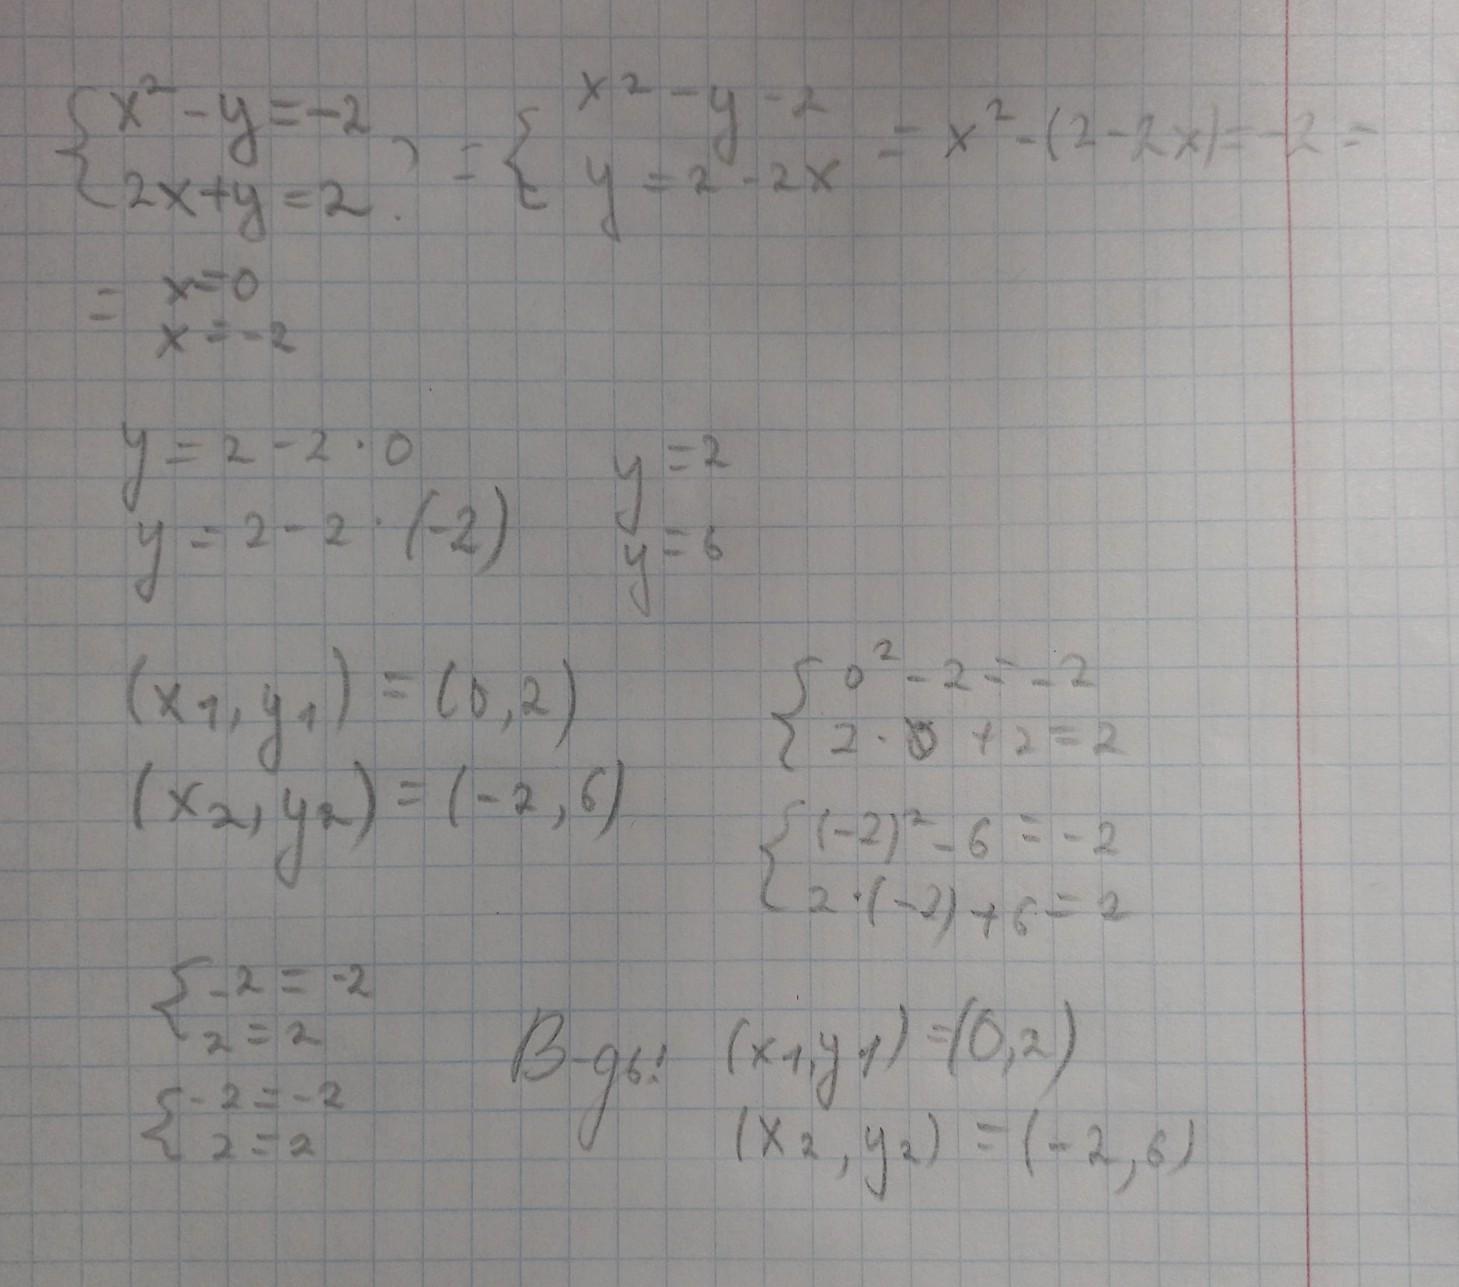 {x² - y = -2 = {x2 - y - 2 = x² - (2 - 2x) = -2 =
{2x + y = 2. {y = 2 - 2x
= x = 0
x = -2
y = 2 - 2 · 0 y = 2
y = 2 - 2 · (-2) y = 6
(x₁, y₁) = (0, 2)
(x₂, y₂) = (-2, 6)
{0² - 2 = -2
{2 · 0 + 2 = 2
{(-2)² - 6 = -2
{2 · (-2) + 6 = 2
{-2 = -2
{2 = 2
{-2 = -2
{2 = 2
В-дь: (x₁, y₁) = (0, 2)
(x₂, y₂) = (-2, 6)